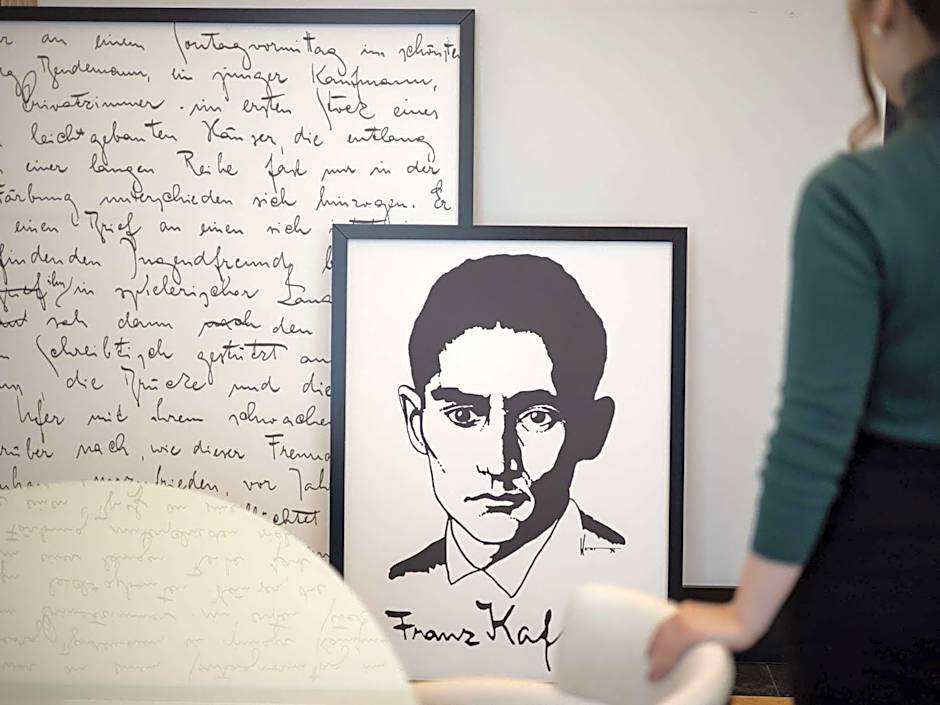 an einem Sonntagvormittag im schönsten
Bendemann, ein junger Kaufmann,
Privatzimmer im ersten Stock eines
leichtgebauten Häuser, die entlang
einer langen Reihe fast nur in der
Färbung unterschieden sich hinzogen. Er
einen Brief an einen sich
findenden Jugendfreund
ihn in spielerischer Lang
sah dann nach den
Schreibtisch gestützt au
die Brücke und die
Ufer mit ihrem schwachen
rüber nach, wie dieser Freund
zufrieden, vor Jah
flüchtet
Franz Kaf